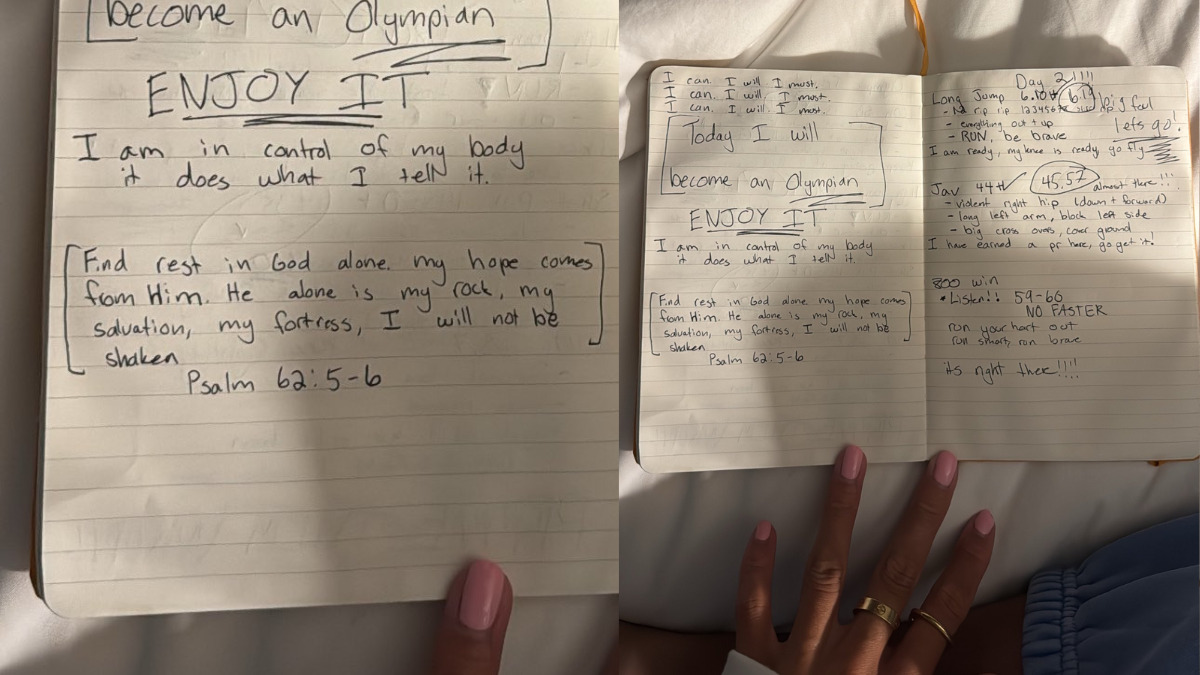 become an Olympian
ENJOY IT
I am in control of my body
it does what I tell it.
Find rest in God alone. my hope comes
from Him. He alone is my rock, my
salvation, my fortress, I will not be
shaken
Psalm 62:5-6
I can. I will. I must.
I can. I will. I must.
I can. I will. I must.
Today I will
become an Olympian
ENJOY IT
I am in control of my body
it does what I tell it.
Find rest in God alone. my hope comes
from Him. He alone is my rock, my
salvation, my fortress, I will not be
shaken
Psalm 62:5-6
Day 2!!!!
Long Jump 6.10+ big foul
- rip rip 123456
- everything out + up lets go!
- RUN, be brave
I am ready, my knee is ready, go fly
Jav 44+ ✓ 45.57 almost there!!!
- violent right hip (down + forward)
- long left arm, block left side
- big cross overs, cover ground
I have earned a pr here, go get it!
800 win
• Listen!! 59-66
NO FASTER
run your hart out
run smart, run brave
its right there!!!!